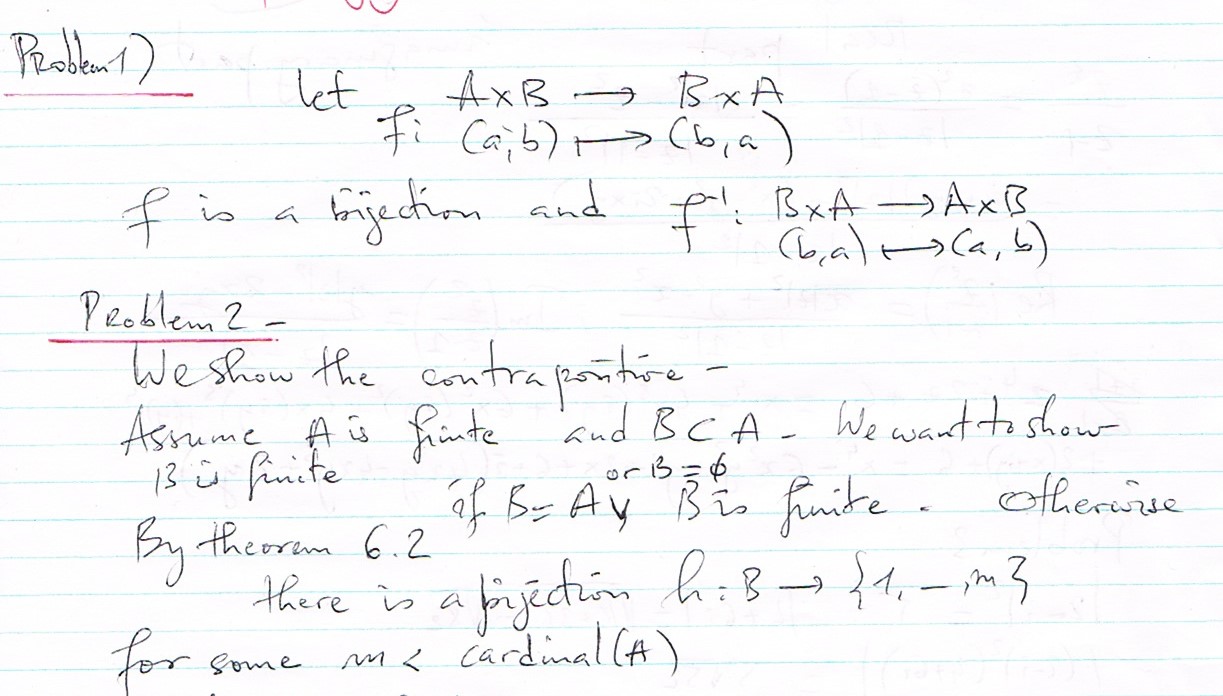 Problem 1)
let A×B → B×A
f: (a,b) ↦ (b,a)
f is a bijection and f⁻¹: B×A → A×B
(b,a) ↦ (a,b)
Problem 2 -
We show the contrapositive -
Assume A is finite and B ⊂ A - We want to show
B is finite
or B = ϕ
if B = A ∨ B is finite. Otherwise
By theorem 6.2
there is a bijection h: B → {1, –, m}
for some m < cardinal(A)